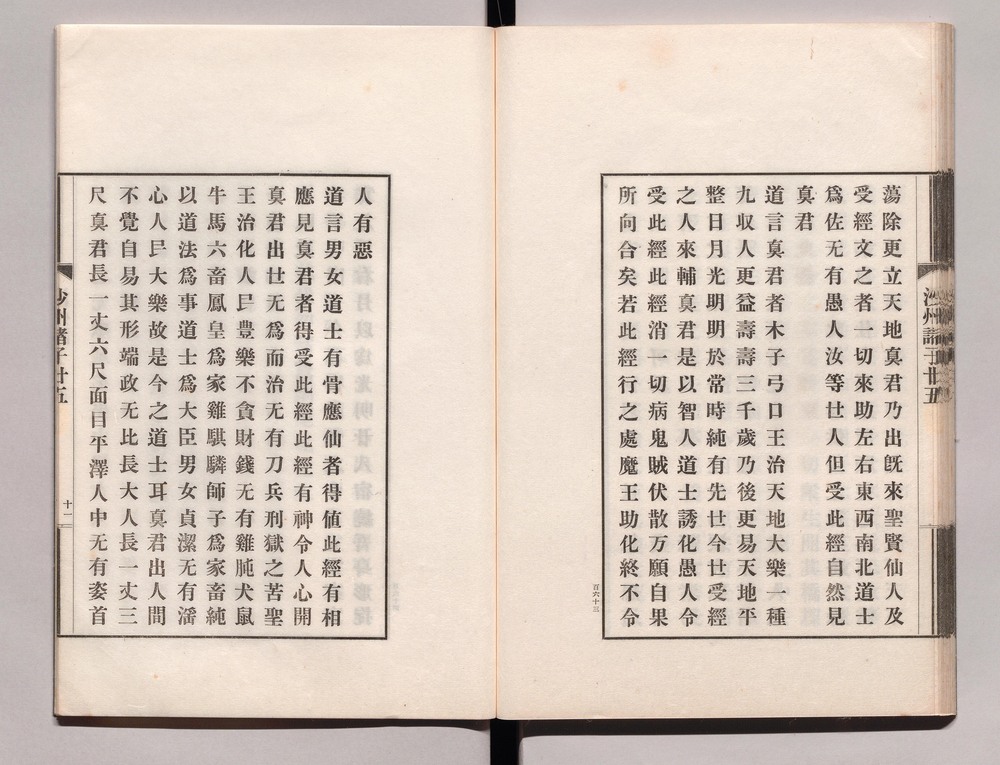 沙州諸子廿五
蕩除更立天地真君乃出旣來聖賢仙人及
受經文之者一切來助左右東西南北道士
爲佐无有愚人汝等世人但受此經自然見
真君
道言真君者木子弓口王治天地大樂一種
九收人更益壽壽三千歲乃後更易天地平
整日月光明明於常時純有先世今世受經
之人來輔真君是以智人道士誘化愚人令
受此經此經消一切病鬼賊伏散万願自果
所向合矣若此經行之處魔王助化終不令
百六十三
人有惡
道言男女道士有骨應仙者得値此經有相
應見真君者得受此經此經有神令人心開
真君出世无爲而治无有刀兵刑獄之苦聖
王治化人民豊樂不貪財錢无有雞肫犬鼠
牛馬六畜鳳皇爲家雞騏驎師子爲家畜純
以道法爲事道士爲大臣男女貞潔无有滛
心人民大樂故是今之道士耳真君出人間
不覺自易其形端政无比長大人長一丈三
尺真君長一丈六尺面目平澤人中无有姿首
沙州諸子廿五
十一